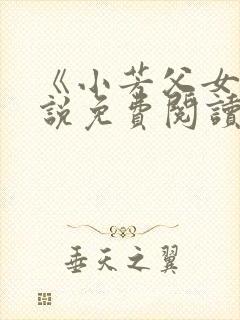 《小芳父女
說免費閱讀
垂天之翼